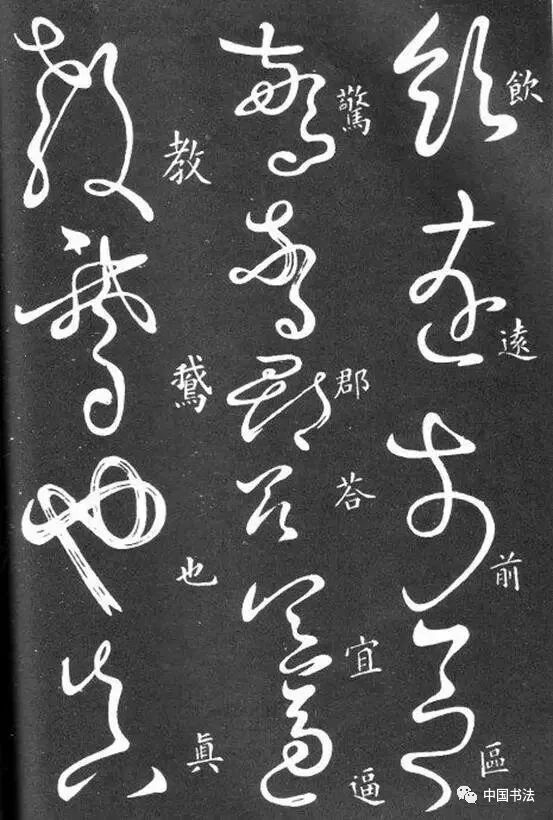 飲遠前區
驚郡荅宜逼
教鵞也眞
中国书法